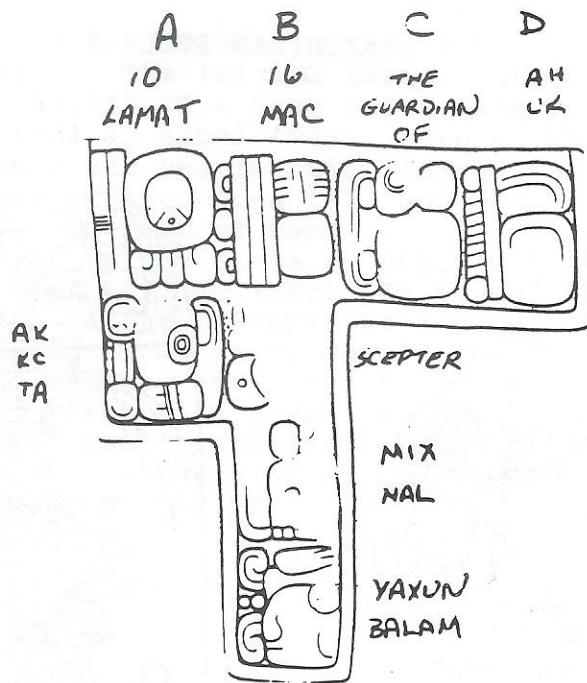 A B C D
10
LAMAT
16
MAC
THE
GUARDIAN
OF
AH
AK
KC
TA
SCEPTER
MIX
NAL
YAXUN
BALAM